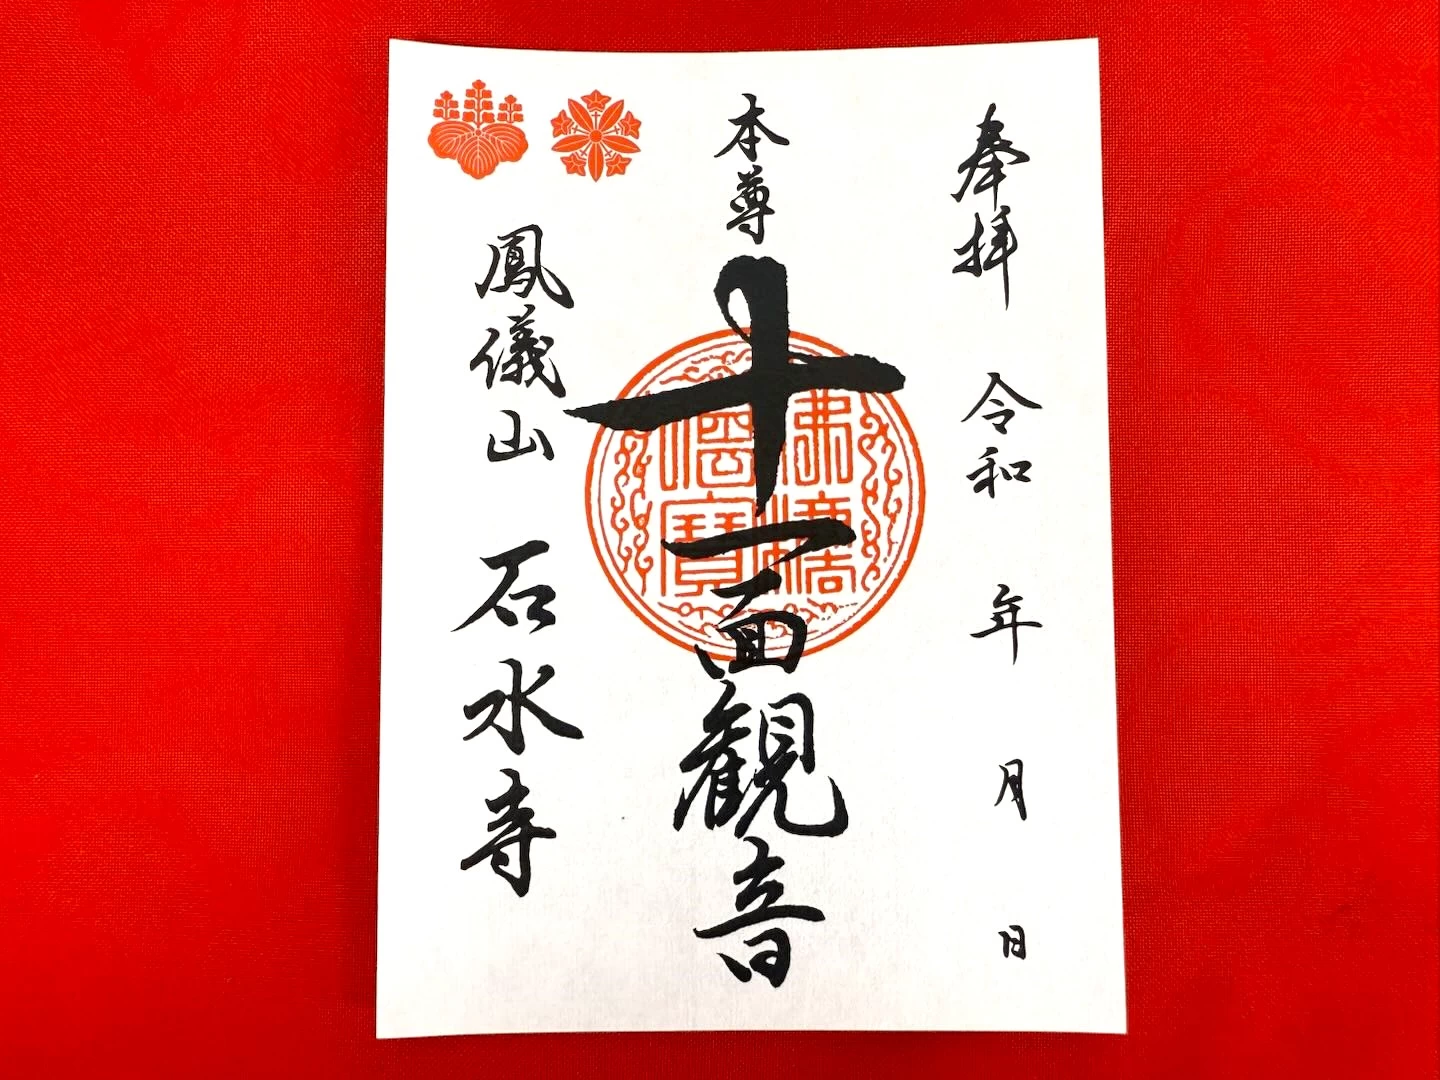 奉拝 令和 年 月 日
本尊 十一面観音
佛法僧寳
鳳儀山 石水寺